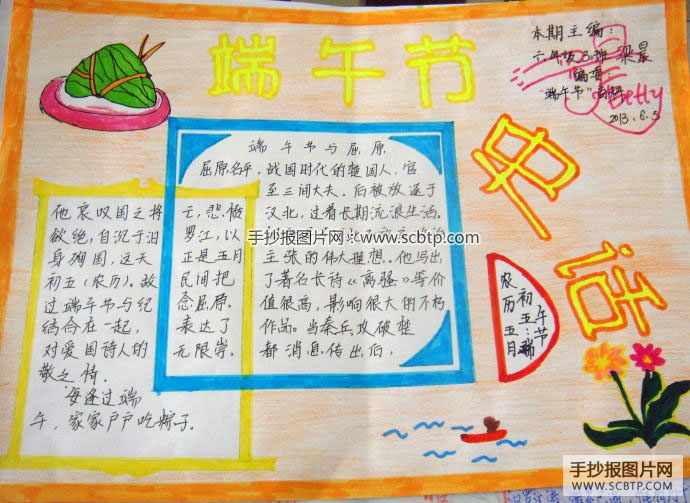 端午节
史话
本期主编:
六年级3班 梁晨
编委:
"端午节"
2013.6.5
端午节与屈原
屈原名平,战国时代的楚国人,官
至三闾大夫。后被放逐于
汉北,过着长期流浪生活。
主张的伟大理想。他写出
了著名长诗《离骚》等价
值很高,影响很大的不朽
作品。当秦兵攻破楚
都消息传出后,
他哀叹国之将亡,悲愤
欲绝,自沉于汨罗江,以
身殉国,这天正是五月
初五(农历)。故民间把
过端午节与纪念屈原.
结合在一起,表达了
对爱国诗人的无限崇.
敬之情.
每逢过端
午,家家户户吃粽子.
农历五月
初五:端
午节
手抄报图片网 - www.scbtp.com
手抄报图片网
SCBTP.COM